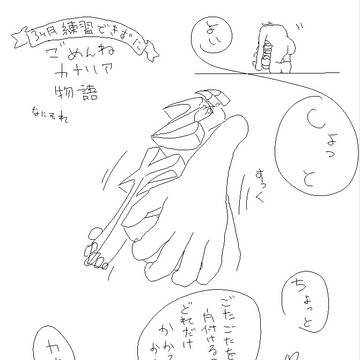 3ヶ月練習できずに
ごめんね
カナリア
物語
なにそれ
よい
しょっと
すっく
ちょっと
ごたごたを
片付けるの
どれだけ